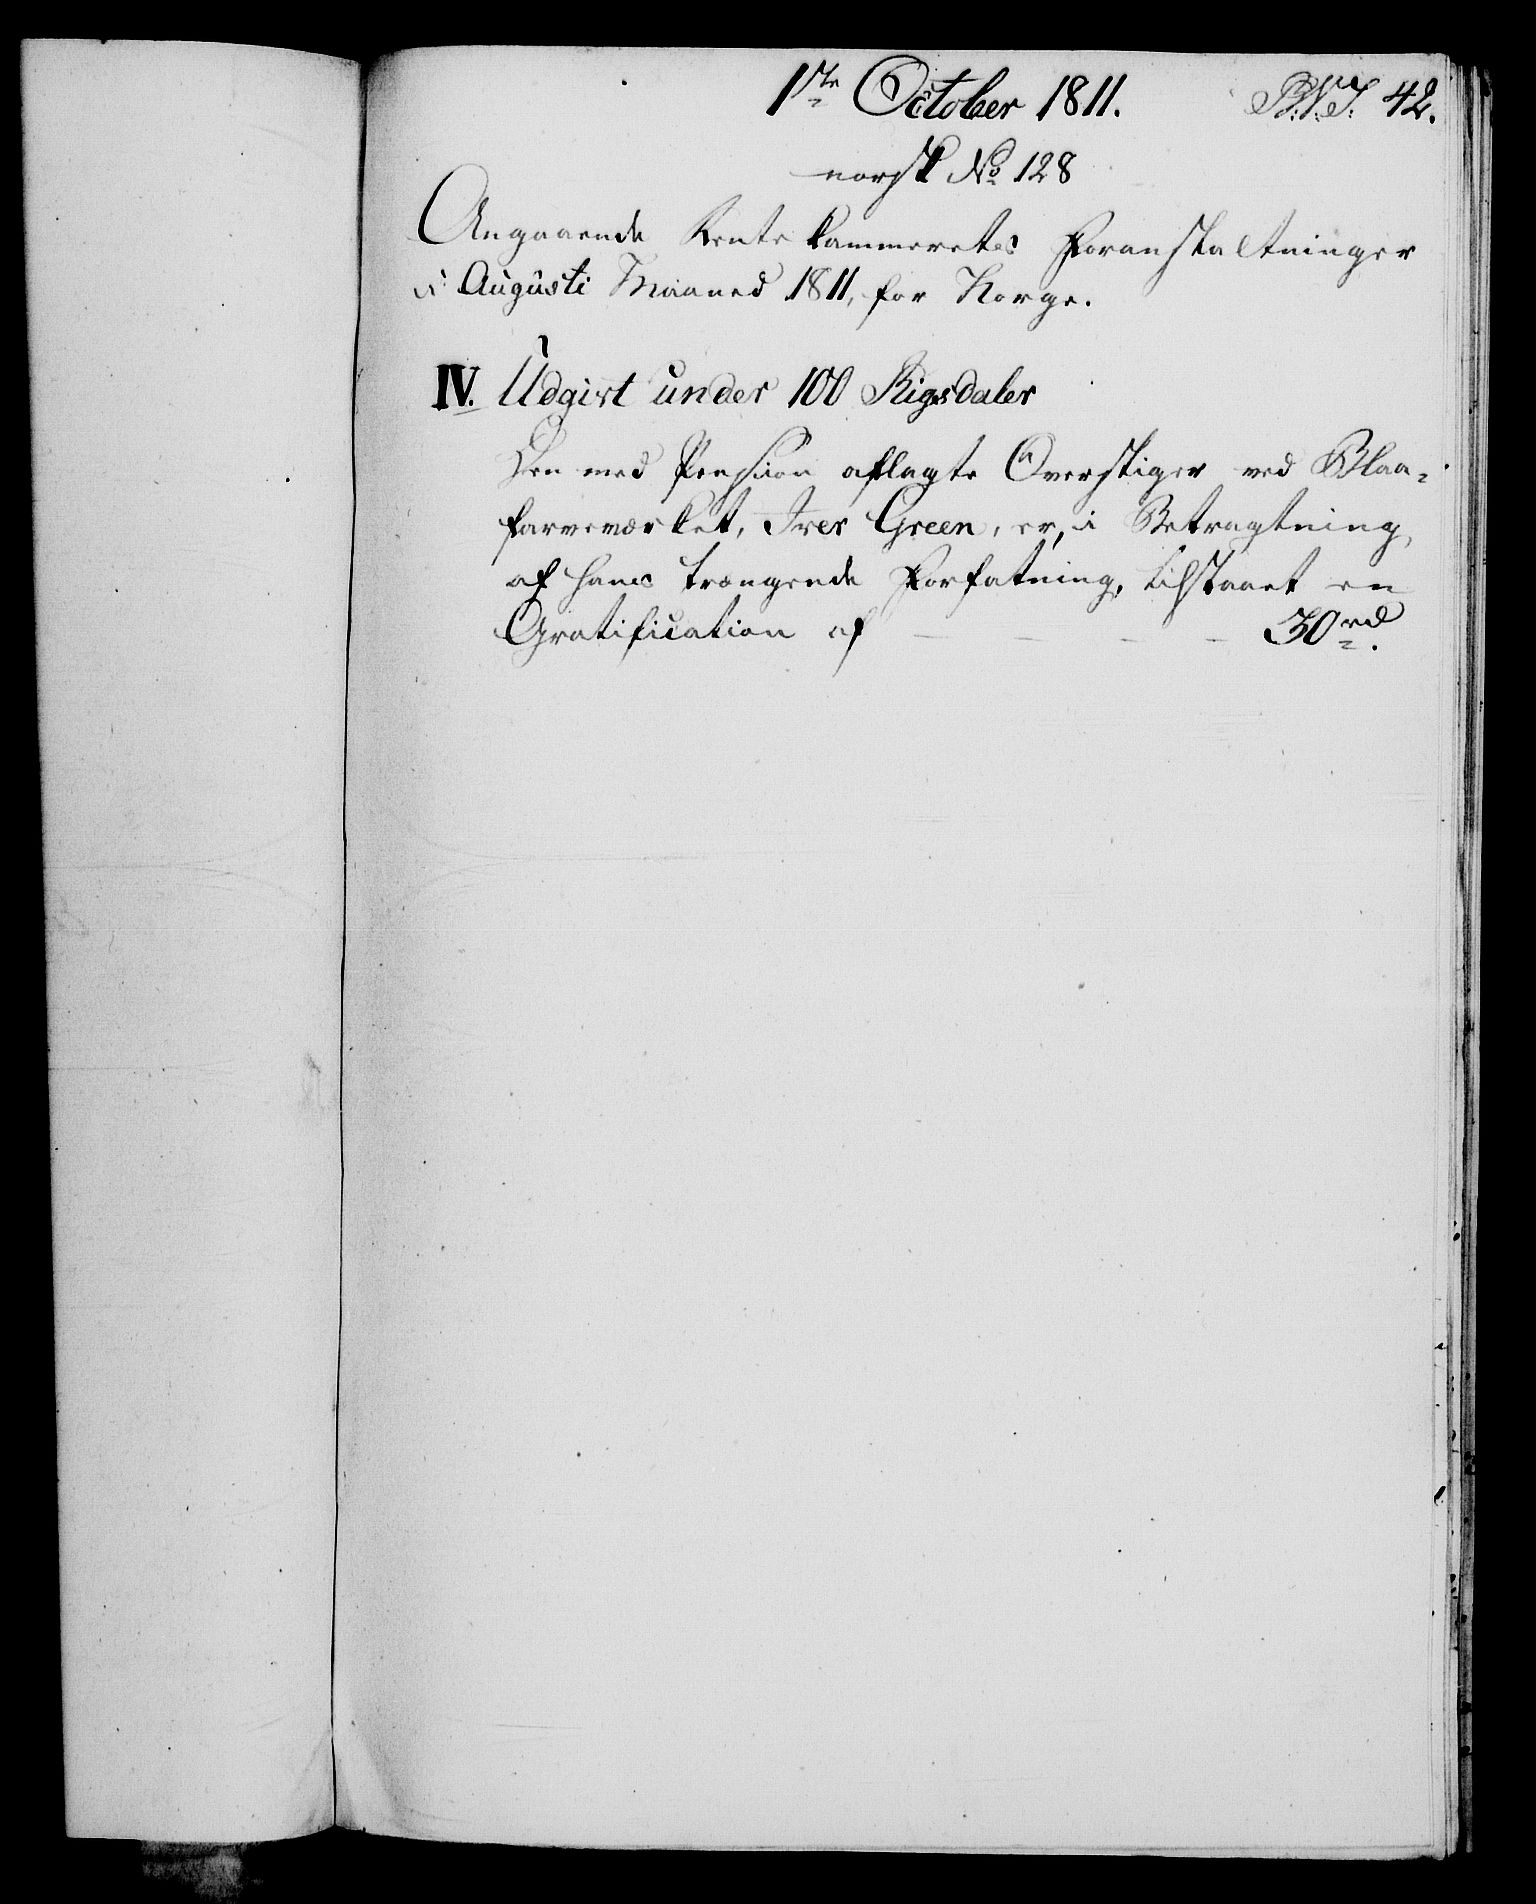 1ste October 1811. B:V:T: 42.
norsk No 128
Angaaende Rentekammerets Foranstaltninger
i Augusti Maaned 1811, for Norge.
IV. Udgivt under 100 Rigsdaler
Den med Pension aflagte Overstiger ved Blaa-
farveværket, Iver Green, er, i Betragtning
af hans trængende Forfatning, tilstaaet en
Gratification af — — — — 30 rd.